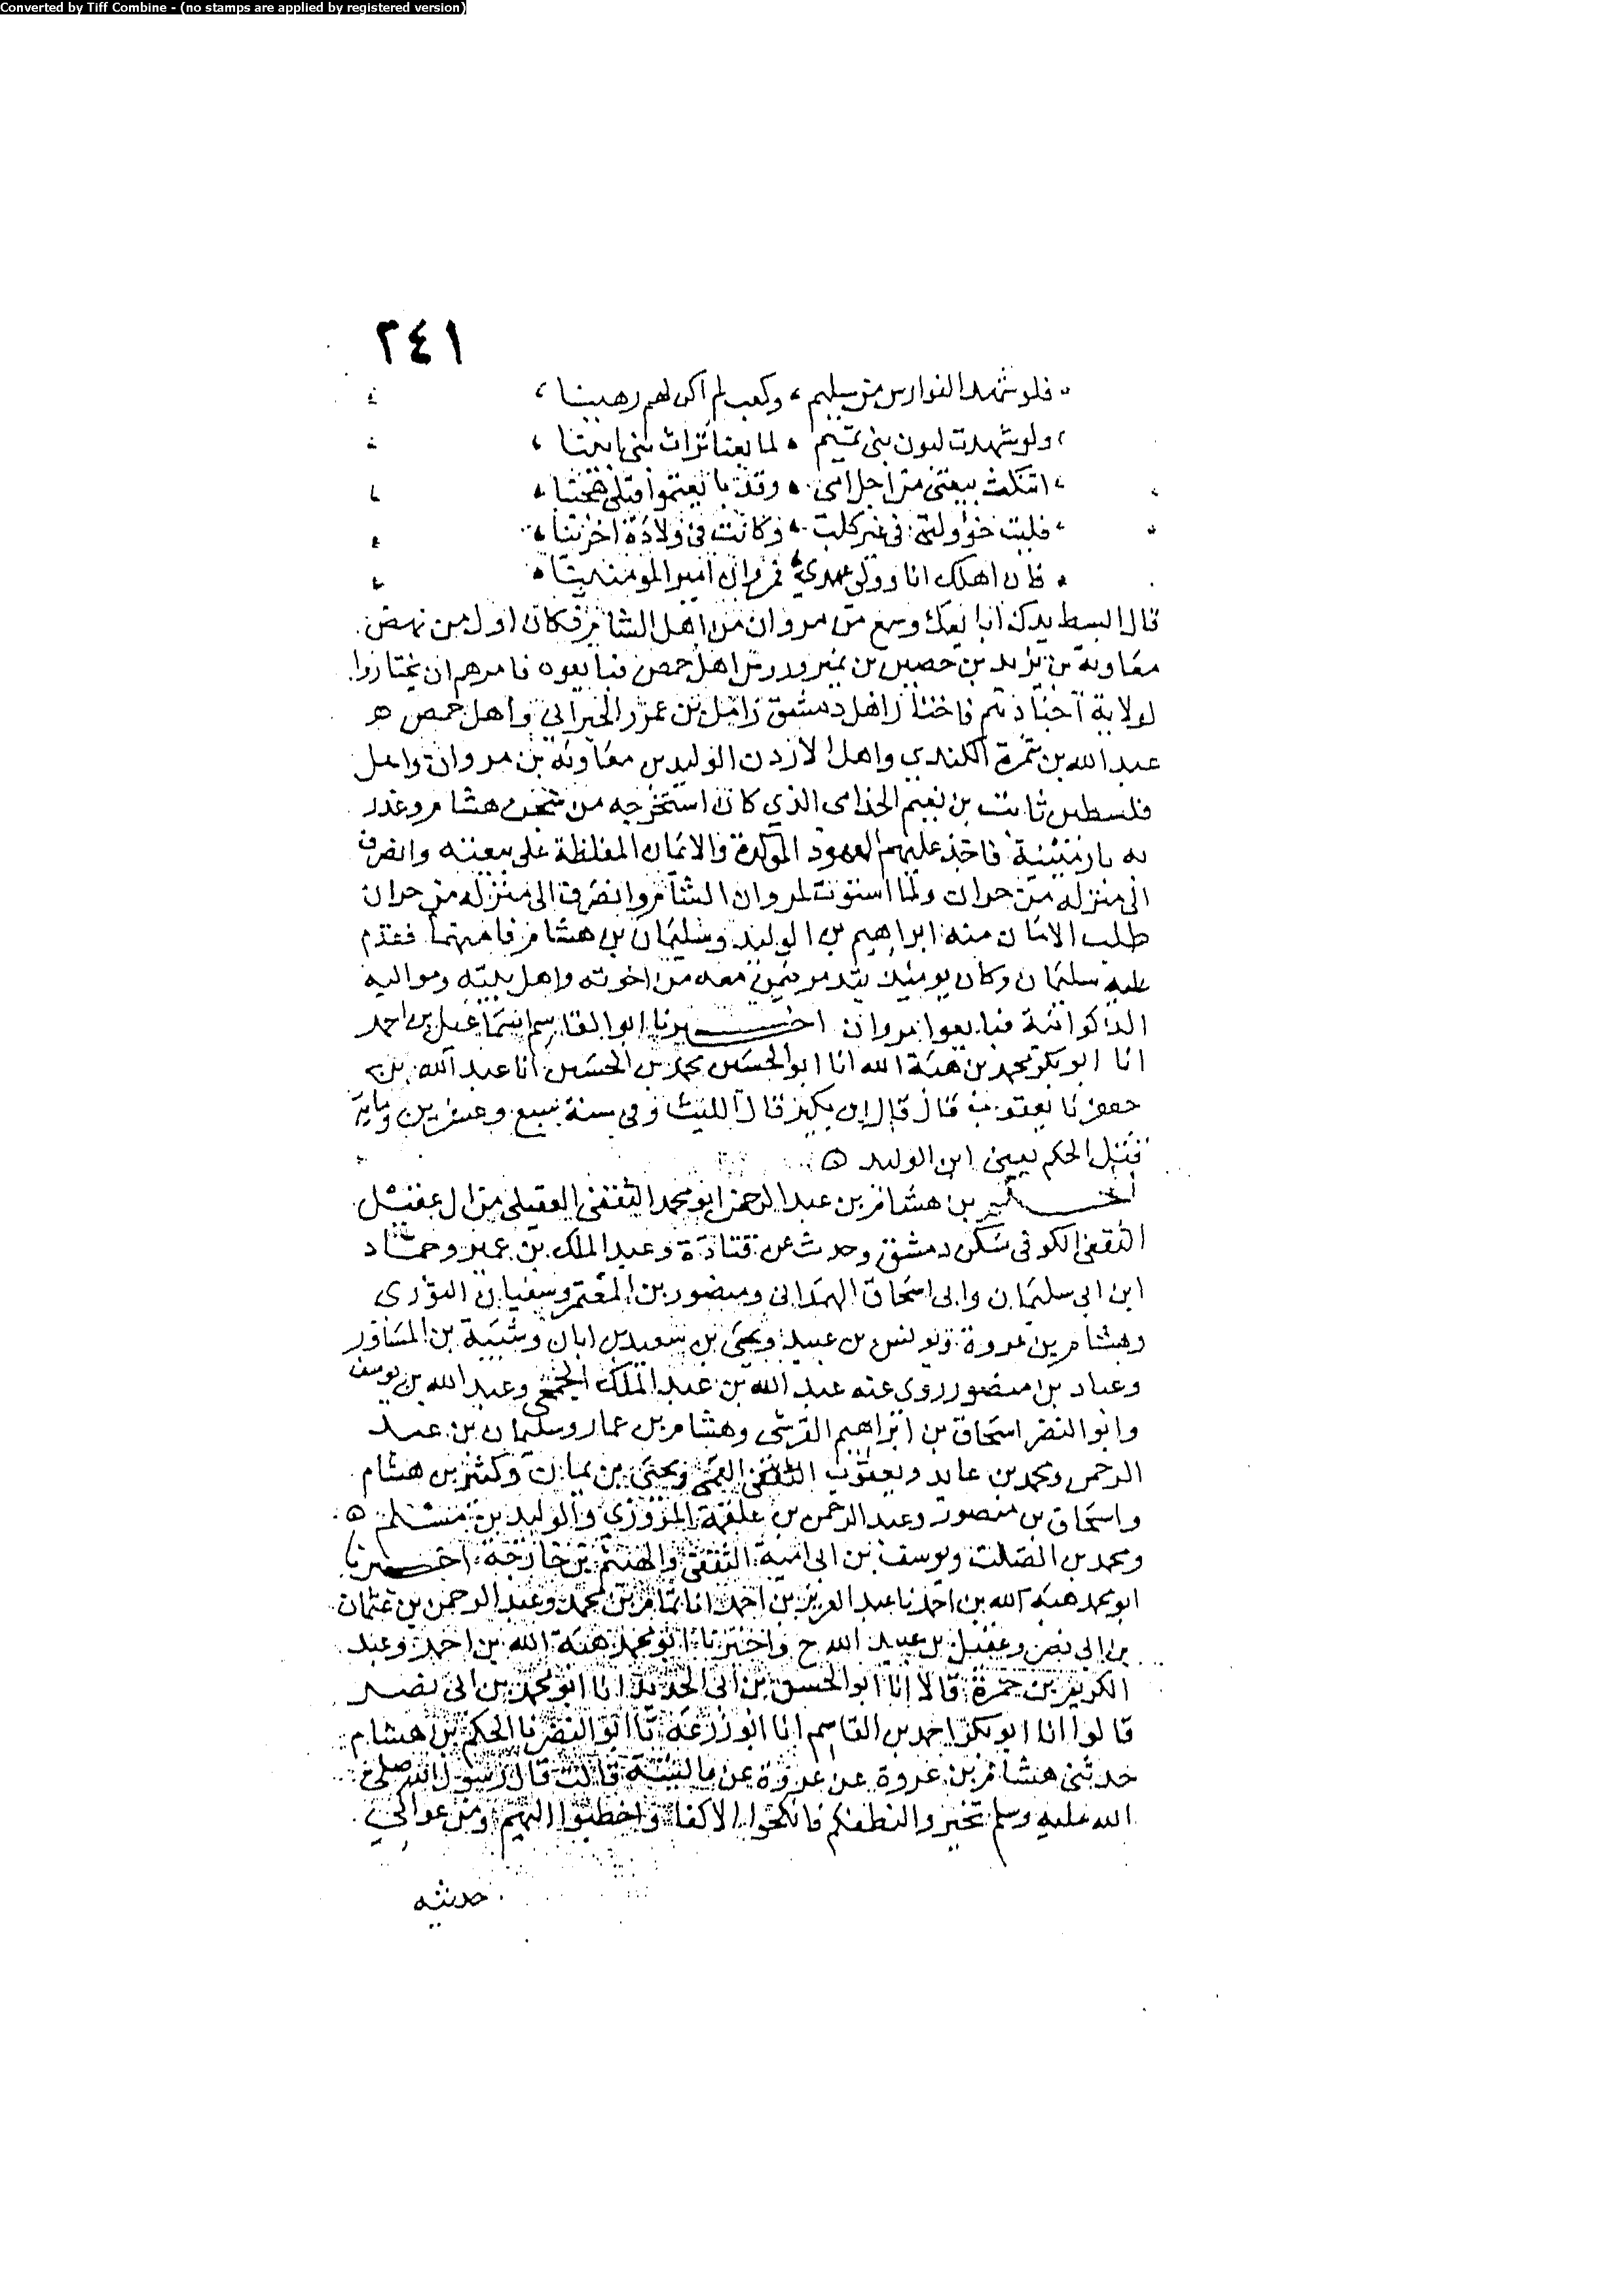 Converted by Tiff Combine - (no stamps are applied by registered version)
٢٤١
فلو شهد الفوارس من سليم ، وكعب لم اكن لهم رهينا ،
ولو شهدت ليوث بني تميم ، لما بعنا تراث بني ابينا ،
اتنكث بيعتي من اجل امي ، وقد بايعتموا قبلي هجينا ،
فليت خؤولتي في غير كلب ، وكانت في ولادة اخرينا ،
فان اهلك انا وولي عهدي فمروان امير المومنينا
قال ابسط يدك ابايعك وسمع من مروان من اهل الشام فكان اول من نهض
معاوية بن يزيد بن حصين بن نمير وروس اهل حمص فبايعوه فامرهم ان يختاروا
لولاية اجنادهم فاختار اهل دمشق زامل بن عمرو الجبراني واهل حمص
عبد الله بن شجرة الكندي واهل الاردن الوليد بن معاوية بن مروان واهل
فلسطين ثابت بن نعيم الجذامي الذي كان استخرجه من سجن هشام وغدر
به بارمينية فاخذ عليهم العهود الموكدة والايمان المغلظة على بيعته وانصرف
الى منزله من حران ولما استوت لمروان الشام وانصرف الى منزله من حران
طلب الامان منه ابراهيم بن الوليد وسليمان بن هشام فامنهما فقدم
عليه سليمان وكان يوميذ بتدمر بمن معه من اخوته واهل بيته ومواليه
الذكوانية فبايعوا مروان اخبرنا ابو القاسم اسماعيل بن احمد
انا ابو بكر محمد بن هبة الله انا ابو الحسين محمد بن الحسين انا عبد الله بن
جعفر نا يعقوب قال قال ابن بكير قال الليث وفي سنة سبع وعشرين وماية
قتل الحكم يعني ابن الوليد ه
الحكم بن هشام بن عبد الرحمن ابو محمد الثقفي العقيلي من ال عقيل
الثقفي الكوفي سكن دمشق وحدث عن قتادة وعبد الملك بن عمير وحماد
ابن ابي سليمان وابي اسحاق الهمداني ومنصور بن المعتمر وسفيان الثوري
وهشام بن عروة ويونس بن عبيد ويحيى بن سعيد بن ابان وشيبة بن المساور
وعباد بن منصور روى عنه عبد الله بن عبد الملك الجمحي وعبد الله بن يوسف
وابو النضر اسحاق بن ابراهيم القرشي وهشام بن عمار وسليمان بن عبد
الرحمن ومحمد بن عايد ويعقوب القمي ويحيى بن يمان وكثير بن هشام
واسحاق بن منصور وعبد الرحمن بن علقمة المروزي والوليد بن مسلم ه
ومحمد بن الصلت ويوسف بن ابي امية الثقفي والهيثم بن خارجة اخبرنا
ابو محمد هبة الله بن احمد نا عبد العزيز بن احمد انا تمام بن محمد وعبد الرحمن بن عثمان
بن ابي نصر وعقيل بن عبيد الله ح واخبرنا ابو محمد هبة الله بن احمد وعبد
الكريم بن حمزة قالا انا ابو الحسن بن ابي الحديد انا ابو محمد بن ابي نصر
قالوا انا ابو بكر احمد بن القاسم انا ابو زرعة نا ابو النضر نا الحكم بن هشام
حدثني هشام بن عروة عن عروة عن عايشة قالت قال رسول الله صلى
الله عليه وسلم تخيروا لنطفكم فانكحوا الاكفا واخطبوا اليهم ومن عوالي
حديثه